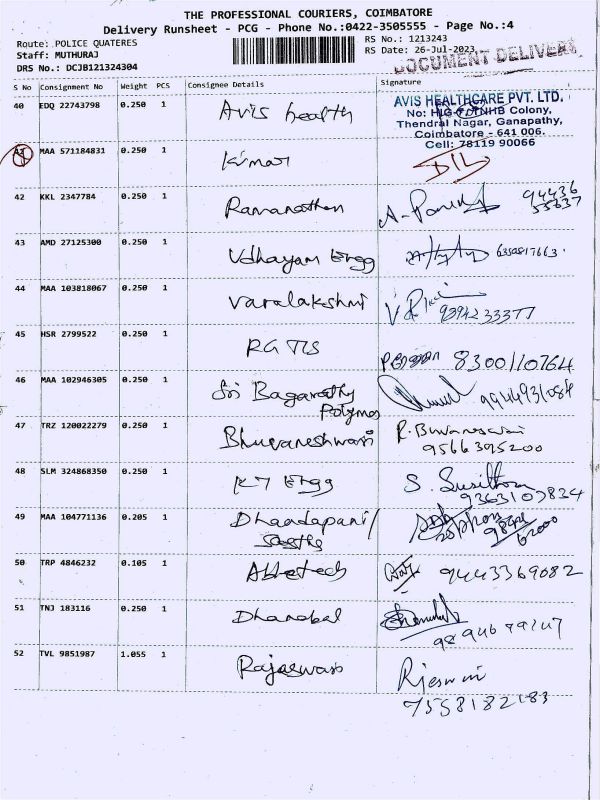 THE PROFESSIONAL COURIERS, COIMBATORE
Delivery Runsheet - PCG - Phone No.:0422-3505555 - Page No.:4
Route: POLICE QUATERES
RS No.: 1213243
Staff: MUTHURAJ
RS Date: 26-Jul-2023
DOCUMENT DELIVERY
DRS No.: DCJB121324304
S No Consignment No Weight PCS Consignee Details Signature
40 EDQ 22743798 0.250 1 Avis health
AVIS HEALTHCARE PVT. LTD.
No: HIG TNHB Colony,
Thendral Nagar, Ganapathy,
Coimbatore - 641 006.
Cell: 78119 90066
41 MAA 571184831 0.250 1 Kumar D/L
42 KKL 2347784 0.250 1 Ramanathan 94436
43 AMD 27125300 0.250 1 Udhayam Engg
44 MAA 103818067 0.250 1 Varalakshmi 9394233377
45 HSR 2799522 0.250 1 RG TLS 8300110764
46 MAA 102946305 0.250 1 Sri Bagarathy
Polymos 9944931084
47 TRZ 120022279 0.250 1 Bhuvaneshwari R. Buvaneswari
9566395200
48 SLM 324868350 0.250 1 K7 Engg S. Susithra
9363107834
49 MAA 104771136 0.205 1 Dhandapani/
50 TRP 4846232 0.105 1 9443369082
51 TNJ 183116 0.250 1 Dhanabal
52 TVL 9851987 1.055 1 Rajaswari
7558182183